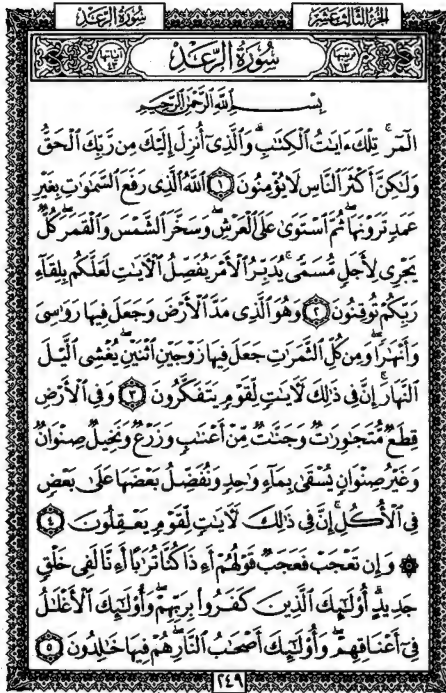 الجزء الثالث عشر سورة الرعد
سورة الرعد
بسم الله الرحمن الرحيم
الٓمٓر ۚ تِلْكَ ءَايَٰتُ ٱلْكِتَٰبِ ۗ وَٱلَّذِىٓ أُنزِلَ إِلَيْكَ مِن رَّبِّكَ ٱلْحَقُّ
وَلَٰكِنَّ أَكْثَرَ ٱلنَّاسِ لَا يُؤْمِنُونَ ١ ٱللَّهُ ٱلَّذِى رَفَعَ ٱلسَّمَٰوَٰتِ بِغَيْرِ
عَمَدٍ تَرَوْنَهَا ۖ ثُمَّ ٱسْتَوَىٰ عَلَى ٱلْعَرْشِ ۖ وَسَخَّرَ ٱلشَّمْسَ وَٱلْقَمَرَ ۖ كُلٌّ
يَجْرِى لِأَجَلٍ مُّسَمًّى ۚ يُدَبِّرُ ٱلْأَمْرَ يُفَصِّلُ ٱلْءَايَٰتِ لَعَلَّكُم بِلِقَآءِ
رَبِّكُمْ تُوقِنُونَ ٢ وَهُوَ ٱلَّذِى مَدَّ ٱلْأَرْضَ وَجَعَلَ فِيهَا رَوَٰسِىَ
وَأَنْهَٰرًا ۖ وَمِن كُلِّ ٱلثَّمَرَٰتِ جَعَلَ فِيهَا زَوْجَيْنِ ٱثْنَيْنِ ۖ يُغْشِى ٱلَّيْلَ
ٱلنَّهَارَ ۚ إِنَّ فِى ذَٰلِكَ لَءَايَٰتٍ لِّقَوْمٍ يَتَفَكَّرُونَ ٣ وَفِى ٱلْأَرْضِ
قِطَعٌ مُّتَجَٰوِرَٰتٌ وَجَنَّٰتٌ مِّنْ أَعْنَٰبٍ وَزَرْعٌ وَنَخِيلٌ صِنْوَانٌ
وَغَيْرُ صِنْوَانٍ يُسْقَىٰ بِمَآءٍ وَٰحِدٍ وَنُفَضِّلُ بَعْضَهَا عَلَىٰ بَعْضٍ
فِى ٱلْأُكُلِ ۚ إِنَّ فِى ذَٰلِكَ لَءَايَٰتٍ لِّقَوْمٍ يَعْقِلُونَ ٤
۞ وَإِن تَعْجَبْ فَعَجَبٌ قَوْلُهُمْ أَءِذَا كُنَّا تُرَٰبًا أَءِنَّا لَفِى خَلْقٍ
جَدِيدٍ ۗ أُو۟لَٰٓئِكَ ٱلَّذِينَ كَفَرُوا۟ بِرَبِّهِمْ ۖ وَأُو۟لَٰٓئِكَ ٱلْأَغْلَٰلُ
فِىٓ أَعْنَاقِهِمْ ۖ وَأُو۟لَٰٓئِكَ أَصْحَٰبُ ٱلنَّارِ ۖ هُمْ فِيهَا خَٰلِدُونَ ٥
٢٤٩